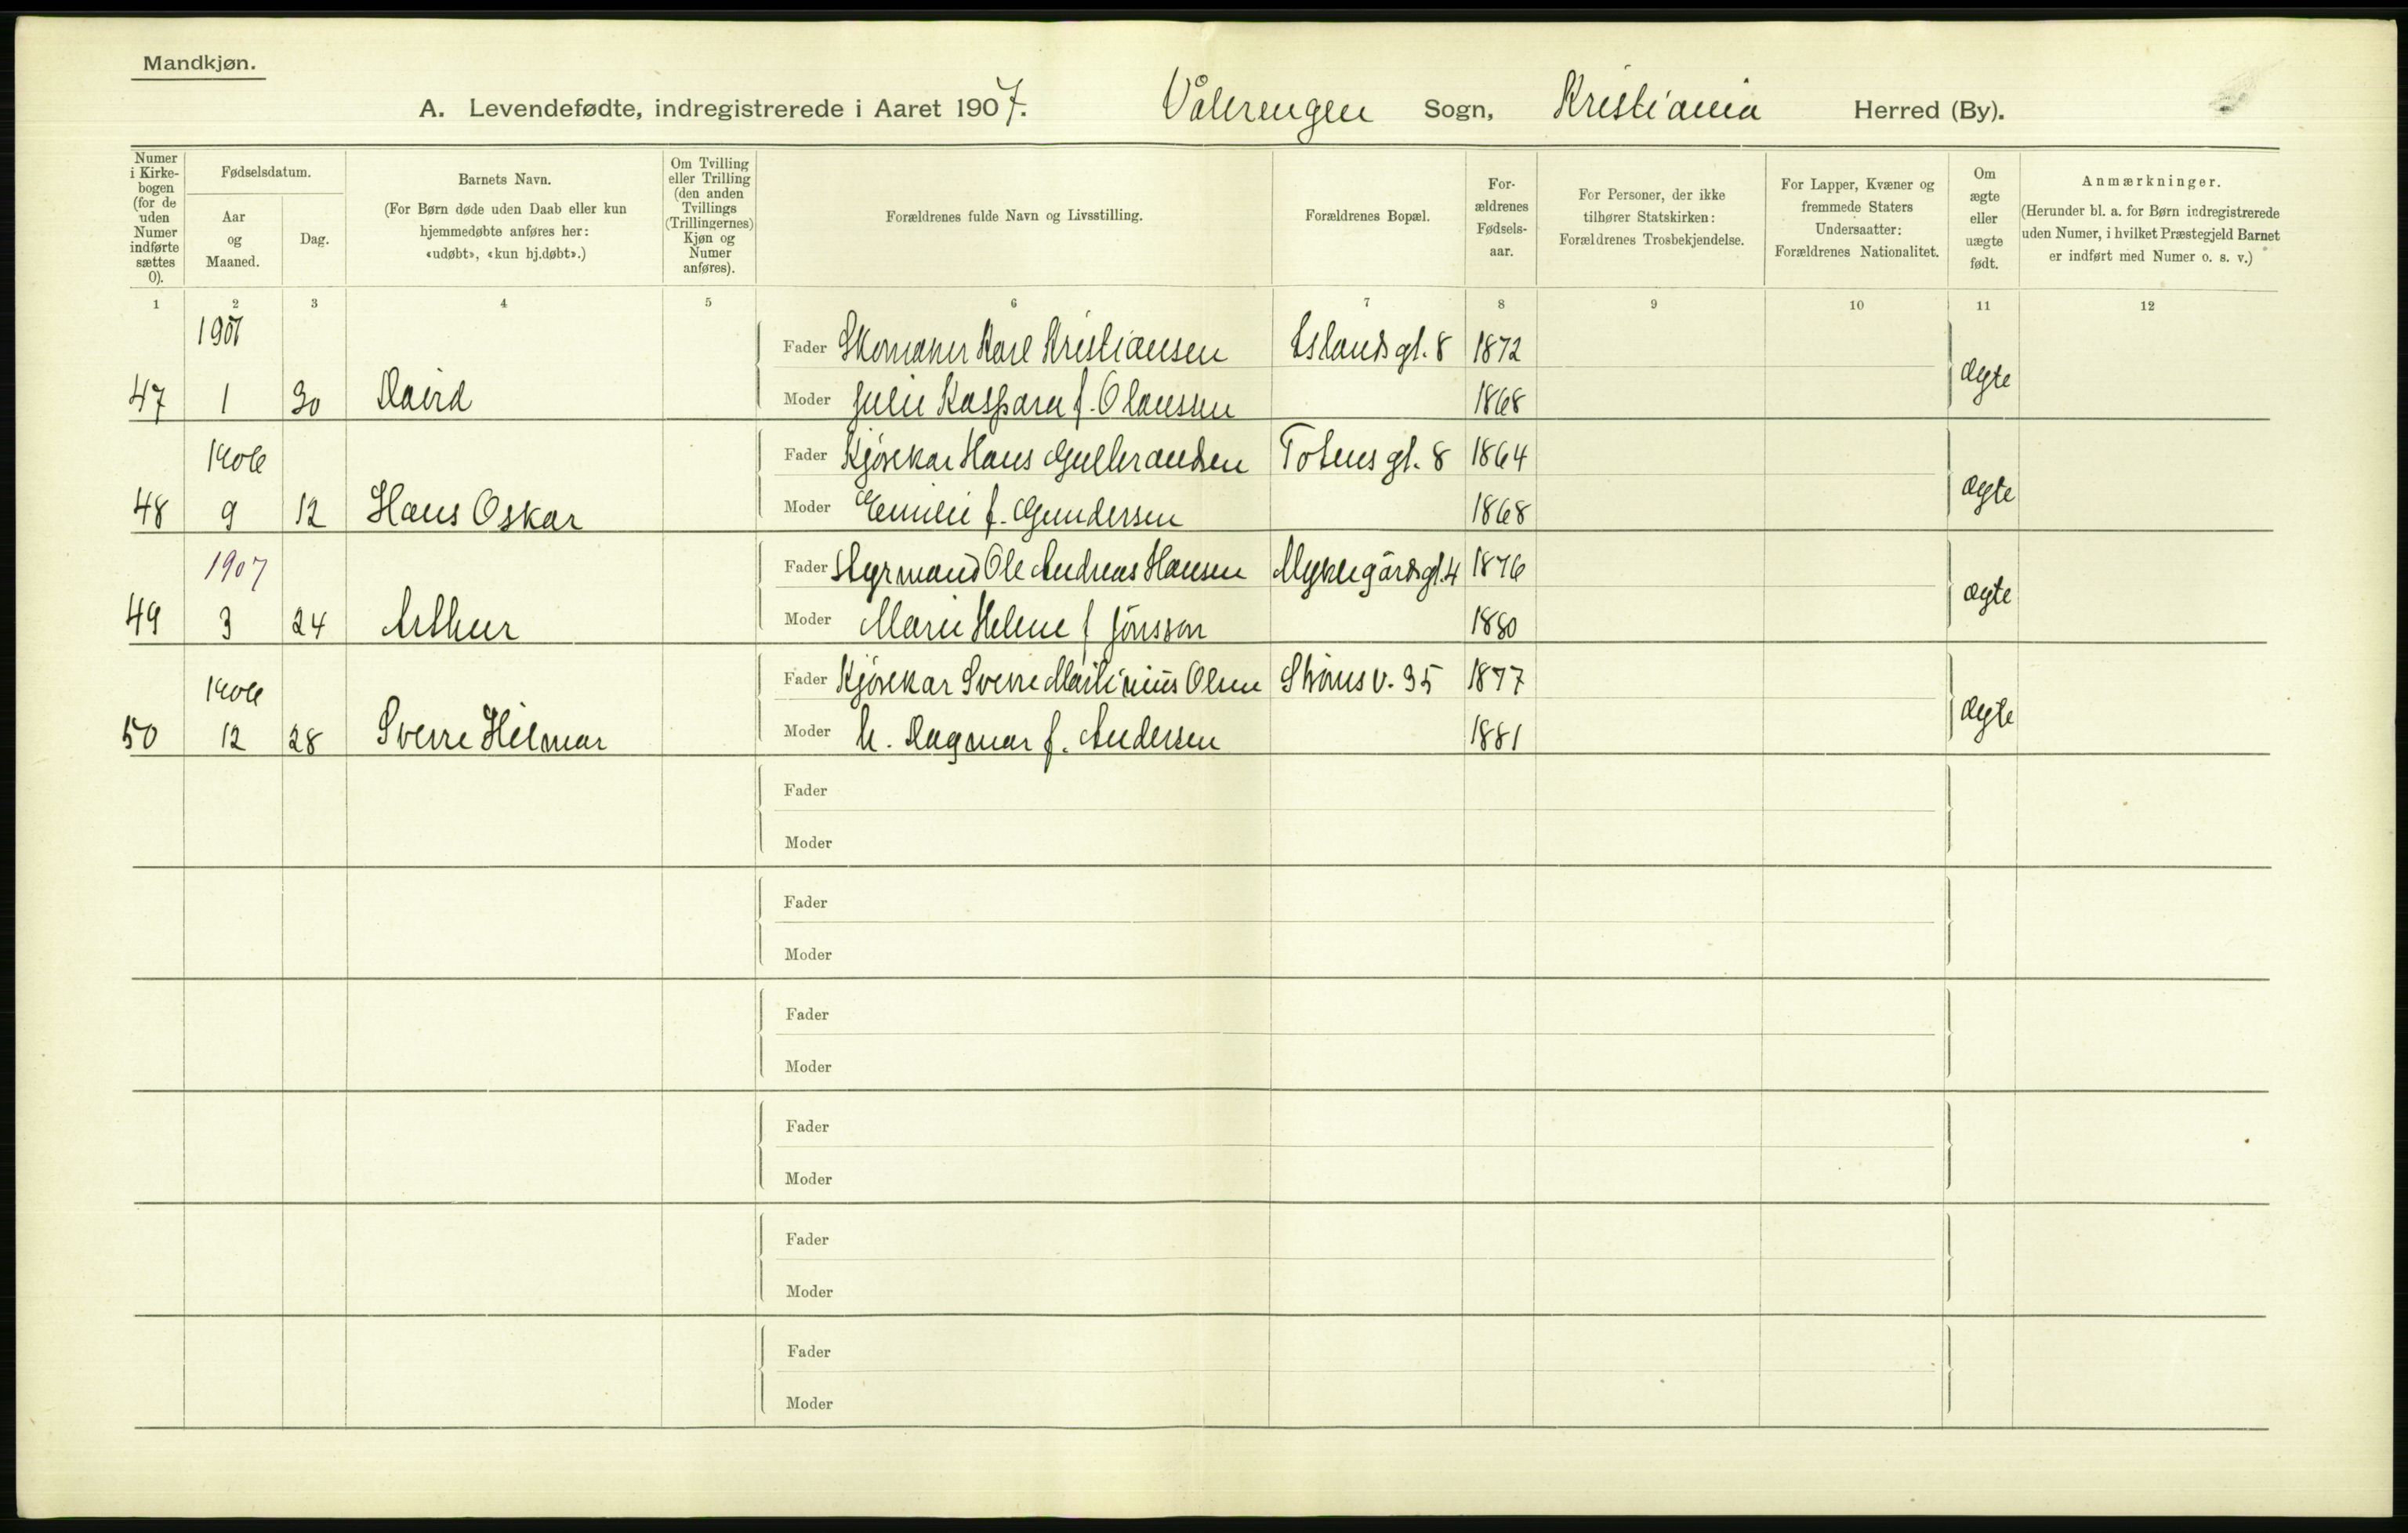 Mandkjøn.
A. Levendefødte, indregistrerede i Aaret 1907. Vålerengen Sogn, Kristiania Herred (By).
Numer i Kirkebogen (for de uden Numer indførte sættes 0).
Fødselsdatum.
Aar og Maaned.
Dag.
Barnets Navn.
(For Børn døde uden Daab eller kun hjemmedøbte anføres her: «udøbt», «kun hj.døbt».)
Om Tvilling eller Trilling (den anden Tvillings (Trillingernes) Kjøn og Numer anføres).
Forældrenes fulde Navn og Livsstilling.
Forældrenes Bopæl.
Forældrenes Fødselsaar.
For Personer, der ikke tilhører Statskirken: Forældrenes Trosbekjendelse.
For Lapper, Kvæner og fremmede Staters Undersaatter: Forældrenes Nationalitet.
Om ægte eller uægte født.
Anmærkninger.
(Herunder bl. a. for Børn indregistrerede uden Numer, i hvilket Præstegjeld Barnet er indført med Numer o. s. v.)
1 2 3 4 5 6 7 8 9 10 11 12
1907 Fader Skomaker Karl Kristiansen Eslandsgt. 8 1872 ægte
47 1 30 David Moder Julie Kaspara f. Olaussen 1868
1906 Fader Kjørekar Hans Gulbrandsen Totensgt. 8 1864 ægte
48 9 12 Hans Oskar Moder Emilie f. Gundersen 1868
1907 Fader Styrmand Ole Andreas Hansen Myklegårdsgt. 4 1876 ægte
49 3 24 Arthur Moder Marie Helene f Jönsson 1880
1906 Fader Kjørekar Sverre Martinius Olsen Strømsv. 35 1877 ægte
50 12 28 Sverre Hilmar Moder h. Dagmar f. Andersen 1881
Fader
Moder
Fader
Moder
Fader
Moder
Fader
Moder
Fader
Moder
Fader
Moder